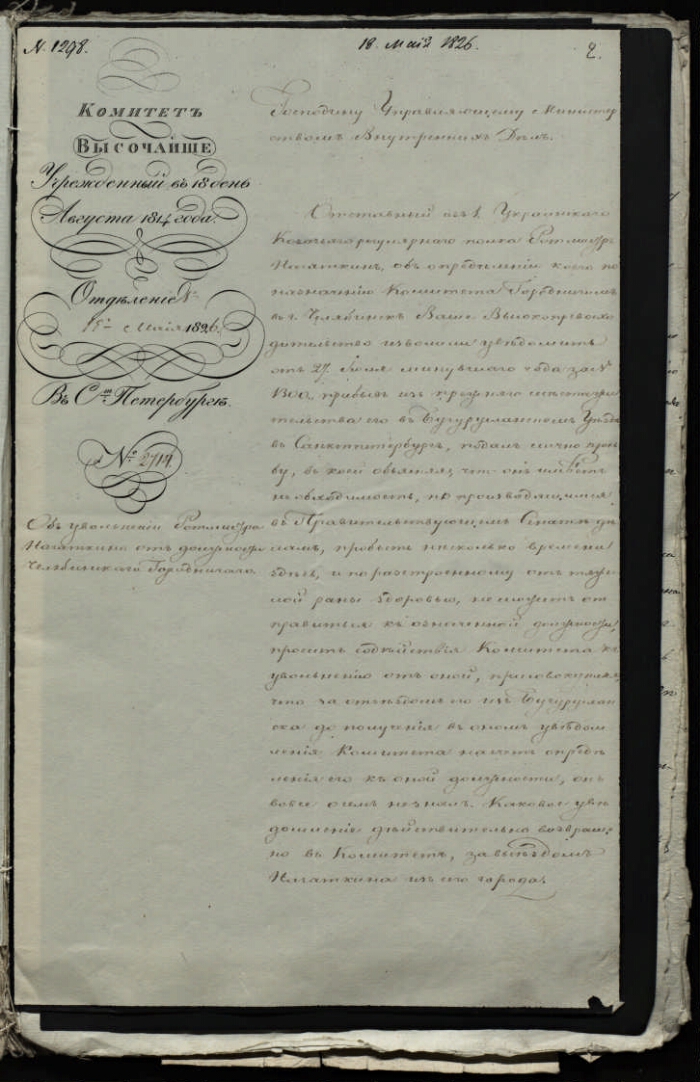 N. 1298.
18. Май 1826.
2.
Комитетъ
Высочайше
Учрежденный въ 18 день
Августа 1814 года.
Отдѣленіе
15го Мая 1826.
Въ С.т Петербургѣ.
№ 2714.
Объ увольненіи Ротмистра
Нагаткина отъ должности
Челябинскаго Городничаго.
Господину Управляющему Министер
ствомъ Внутреннихъ Дѣлъ.
Отставный изъ 1. Украинскаго
полка Ротмистръ
Нагаткинъ, объ опредѣленіи коего по
назначенію Комитета Городничимъ
въ г. Челябинскъ Ваше Высокопревосхо
дительство изволили увѣдомить
отъ 27. минувшаго года за №
1300, прибывъ изъ прежняго жъ
тельства его въ Бугурусланскомъ Уѣздѣ
въ Санктпетербургъ, подалъ прось
бу, въ коей объявляя, что онъ имѣетъ
необходимость, по производящимся
въ Правительствующемъ Сенатѣ дѣ
ламъ, пробыть нѣсколько времени
здѣсь, и по разстроенному отъ тяже
лой раны здоровью, не можетъ от
правиться къ означенной должности,
проситъ содѣйствія Комитета къ
увольненію отъ оной, присовокупляя,
что за отъѣздомъ его изъ Бугуруслан
ска до полученія въ ономъ увѣдом
ленія Комитета на счетъ опредѣ
ленія его къ оной должности, онъ
вовсе о семъ незналъ. Каковое увѣ
домленіе дѣйствительно возвраще
но въ Комитетъ, за выѣздомъ
Нагаткина изъ его города.